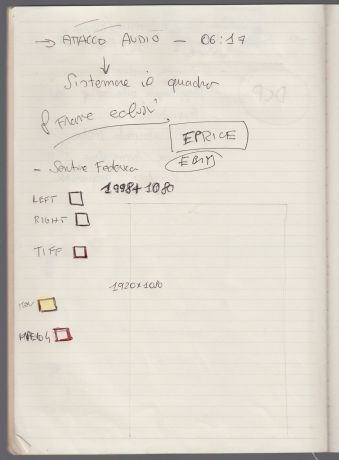 → ATTACCO AUDIO - 06:17
Sistemare il quadro
Frame
EPRICE
- Sentire Federica
1998+1080
LEFT
RIGHT
TIFF
1920x1080
MPEG4